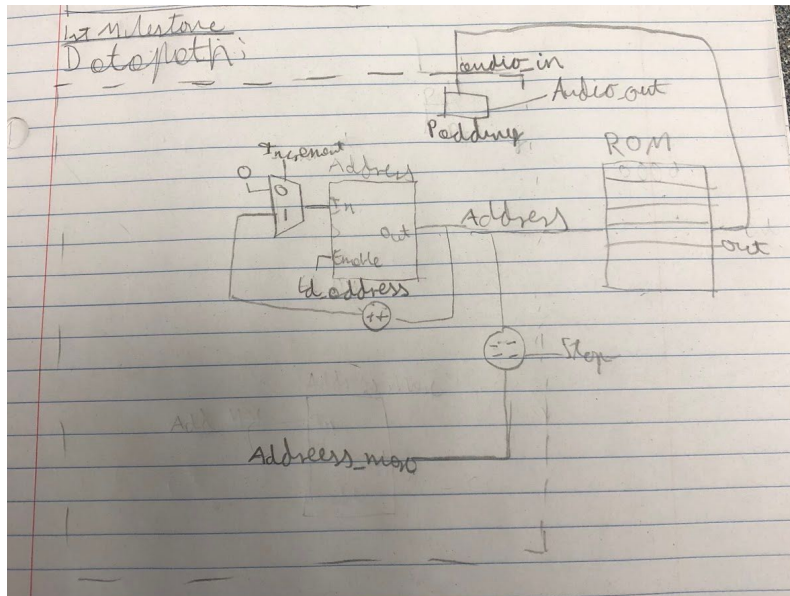 1st Milestone
Datapath:
audio_in
Audio_out
Padding
ROM
Increment
Address
0
0
1
In
Out
Address
out
Enable
Ld_address
++
==
Stop
Addreess_max